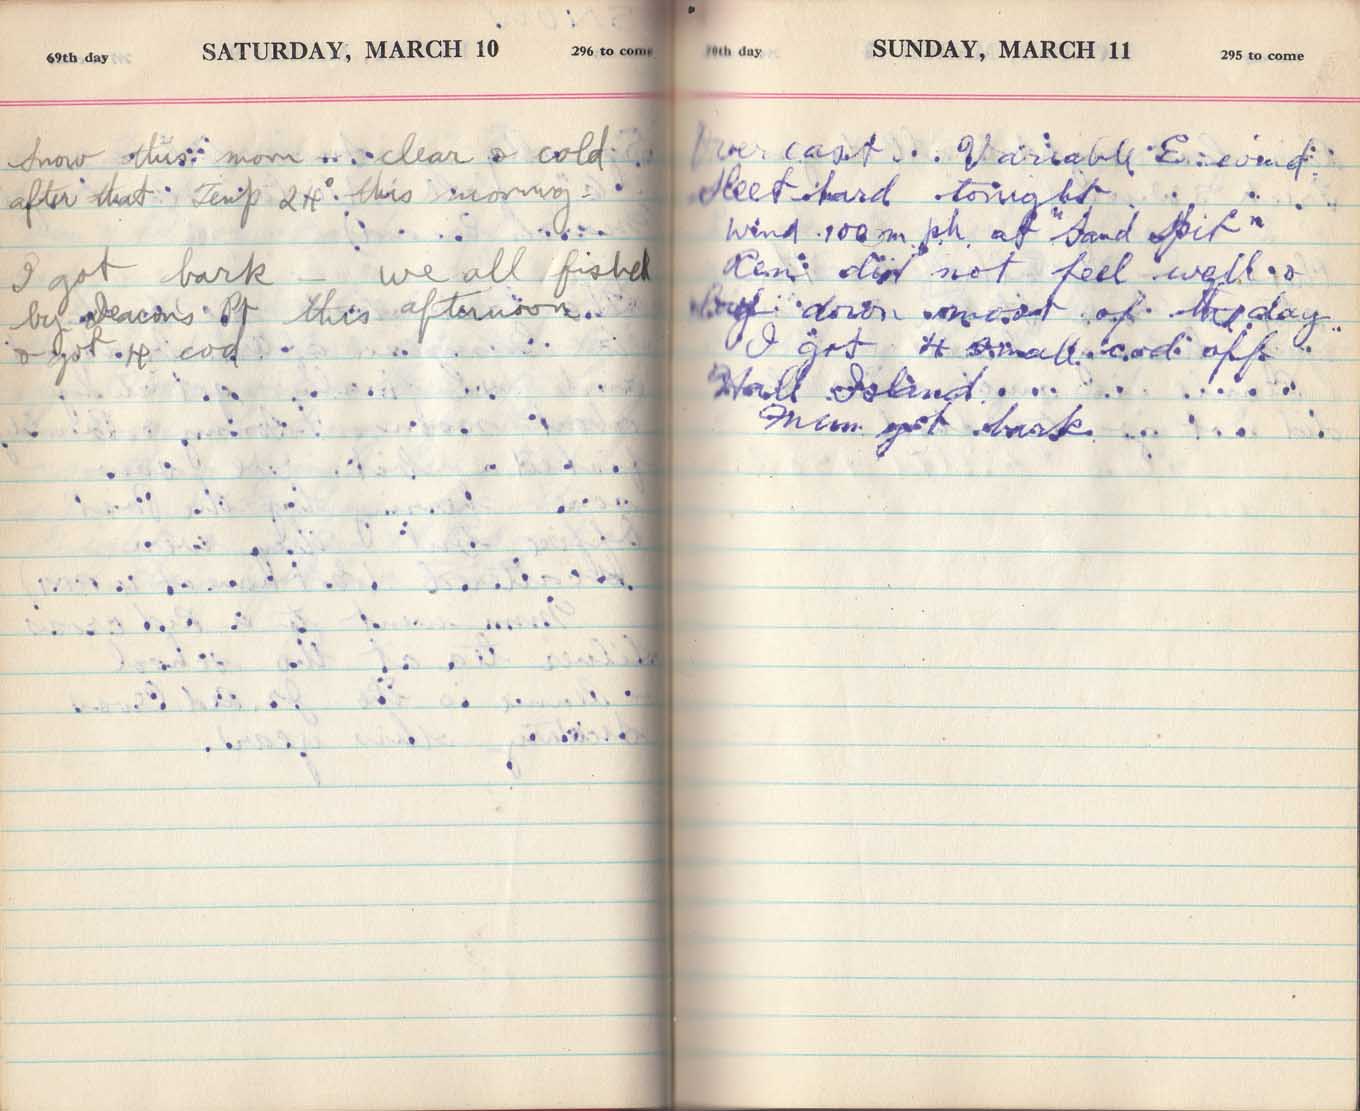 69th day SATURDAY, MARCH 10 296 to come
Snow this morn clear & cold
after that Temp 24° this morning.
I got bark – we all fished
by Deacons Pt this afternoon.
& got 4 cod
70th day SUNDAY, MARCH 11 295 to come
Overcast. Variable E. wind
Sleet hard tonight
Wind 100 m.ph. at "Sand Spit"
did not feel well &
down most of the day
I got 4 small cod off
Hall Island
Mum got bark